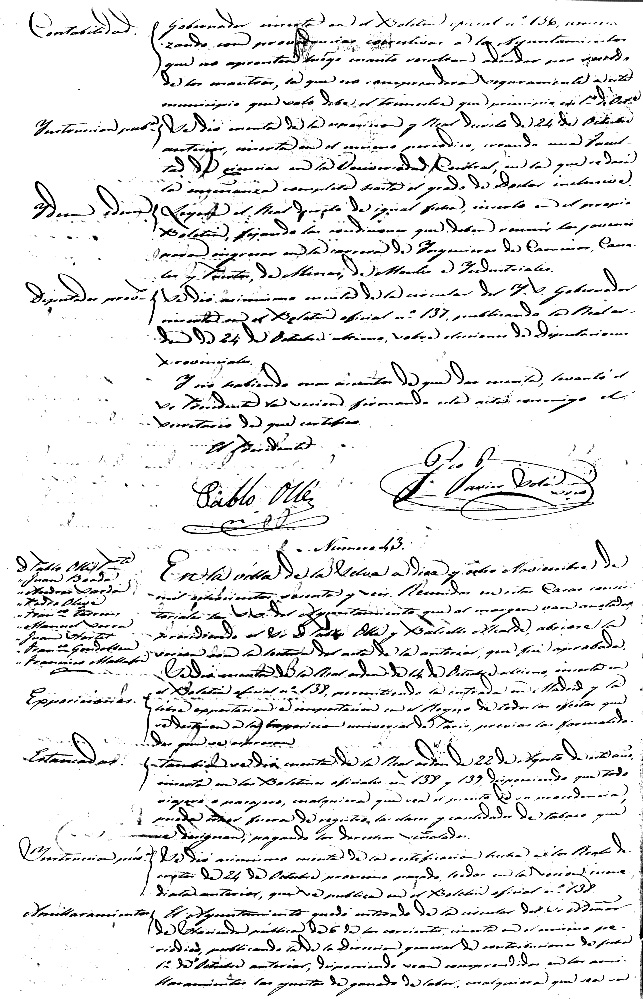 Contabilidad.
Gobernador inserta en el Boletin oficial nº 136, amena-
zando con providencias coercitivas a los Ayuntamientos
que no aprontan luego cuanto resultan adeudar por sueldo
de los maestros, lo que no comprenderá seguramente a este
municipio que solo debe el trimestre que principió en 1º de
Instruccion púb.ca
Se dió cuenta de la esposicion y Real decreto de 24 de Octubre
anterior, inserta en el mismo periodico, creando una Facul-
tad de ciencias en la Universidad Central, en la que se dará
la enseñanza completa hasta el grado de Doctor inclusive.
Ydem idem
Leyose el Real decreto de igual fecha, inserto en el propio
Boletin, fijando las condiciones que deben reunir los jovenes
para ingresar en la carrera de Ingenieros de Caminos, Cana-
les y Puertos, de Minas, de Montes é Industriales.
Diputados prov.
Se dió asimismo cuenta de la circular del Y. S. Gobernador
inserta en el Boletin oficial nº 137, publicando la Real or-
den de 24 de Octubre ultimo, sobre elecciones de Diputaciones
provinciales.
Y no habiendo mas asuntos de que dar cuenta, levantó el
Sr Presidente la sesion firmando esta acta conmigo el
Secretario de que certifico.
El Presidente
Pablo Ollé
Javier
Numero 43.
D. Pablo Ollé
Juan
Pedro
Manuel
Juan
Francisco
En la villa de la Selva a diez y ocho Noviembre de
mil ochocientos sesenta y seis. Reunidos en estas Casas consis-
toriales los Sres del Ayuntamiento que al margen van anotados,
presidiendo el Sr D. Pablo Ollé y Alcalde, abriose la
sesion con la lectura del acta de la anterior, que fué aprobada.
Se dió cuenta de la Real orden de 14 de Octubre ultimo, inserta en
Exposiciones.
el Boletin oficial nº 138, permitiendo la entrada en Madrid y la
libre exportacion é importacion en el Reyno de todos los efectos que
se destinen a la Exposicion universal de Paris, previas las formalida-
des que se espresan.
Estancadas.
Tambien se dió cuenta de la Real orden de 22 de Agosto de este año,
inserta en los Boletines oficiales nº 138 y 139 disponiendo que todo
viajero o pasagero, cualquiera que sea el punto de su procedencia,
pueda traer fuera de registro, la clase y cantidades de tabaco que
se designan, pagando los derechos señalados.
Instruccion púb.
Se dió asimismo cuenta de la rectificacion hecha á los Reales de-
cretos de 24 de Octubre proximo pasado, leidos en la sesion inme-
diata anterior, que se publica en el Boletin oficial nº 138.
Amillaramientos
El Ayuntamiento quedó enterado de la circular del
de Hacienda pública de 6 de los corrientes, inserta en el mismo pe-
riodico, publicando la de la Direccion general de contribuciones de fecha
1º de Octubre anterior, disponiendo sean comprendidas en los ami-
llaramientos las yuntas de ganado de labor, cualquiera que sea su